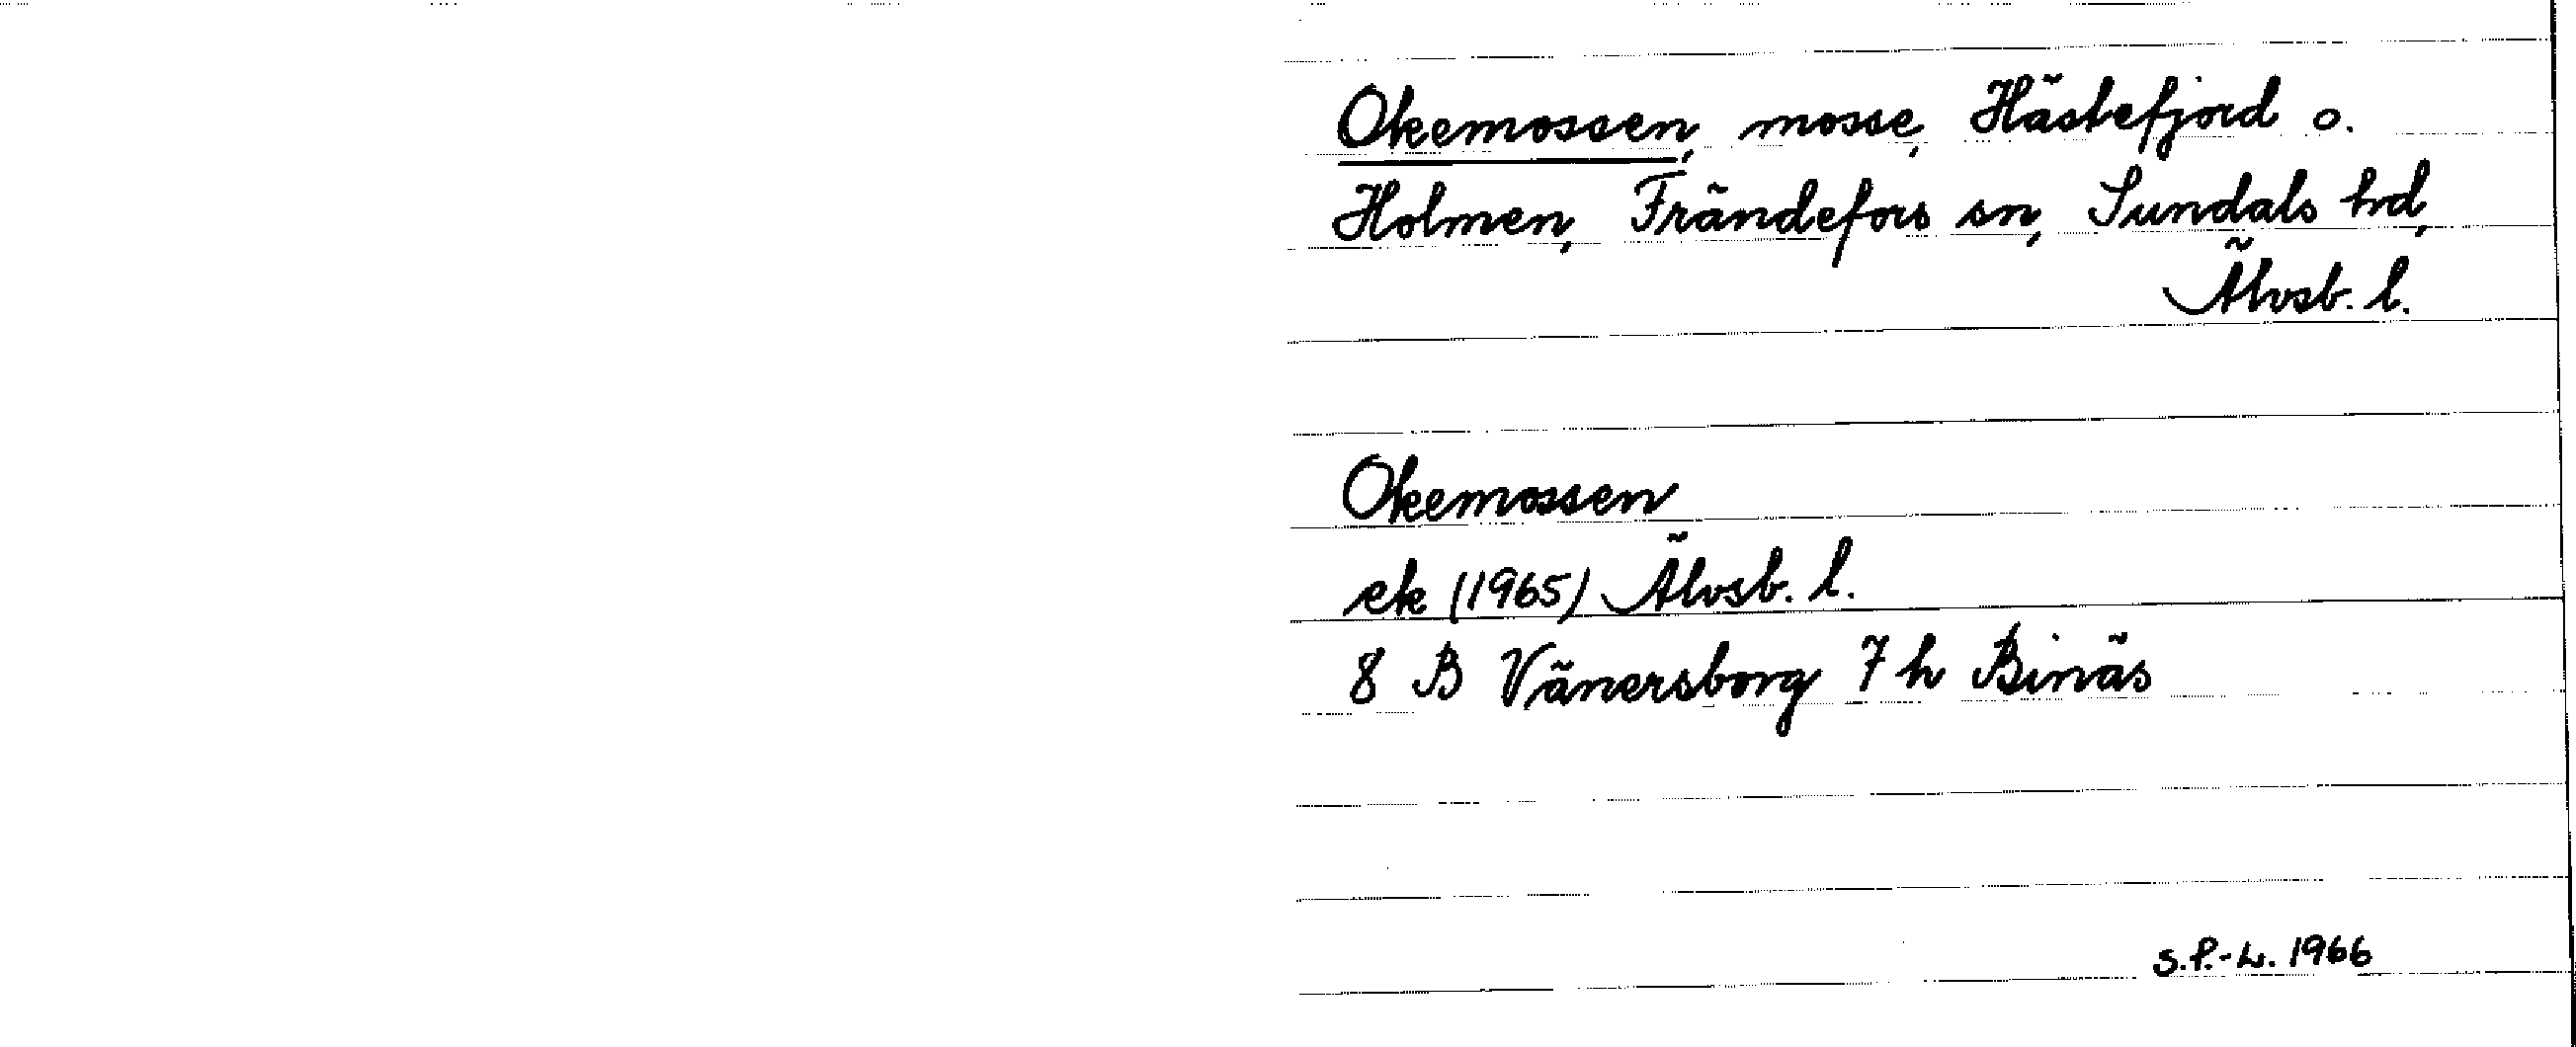 Okemossen, mosse, Hästefjord o.
Holmen, Frändefors sn, Sundals hd,
Älvsb. l.
Okemossen
ek (1965) Älvsb. l.
8 B Vänersborg 7 h Binäs
S.P.-L. 1966